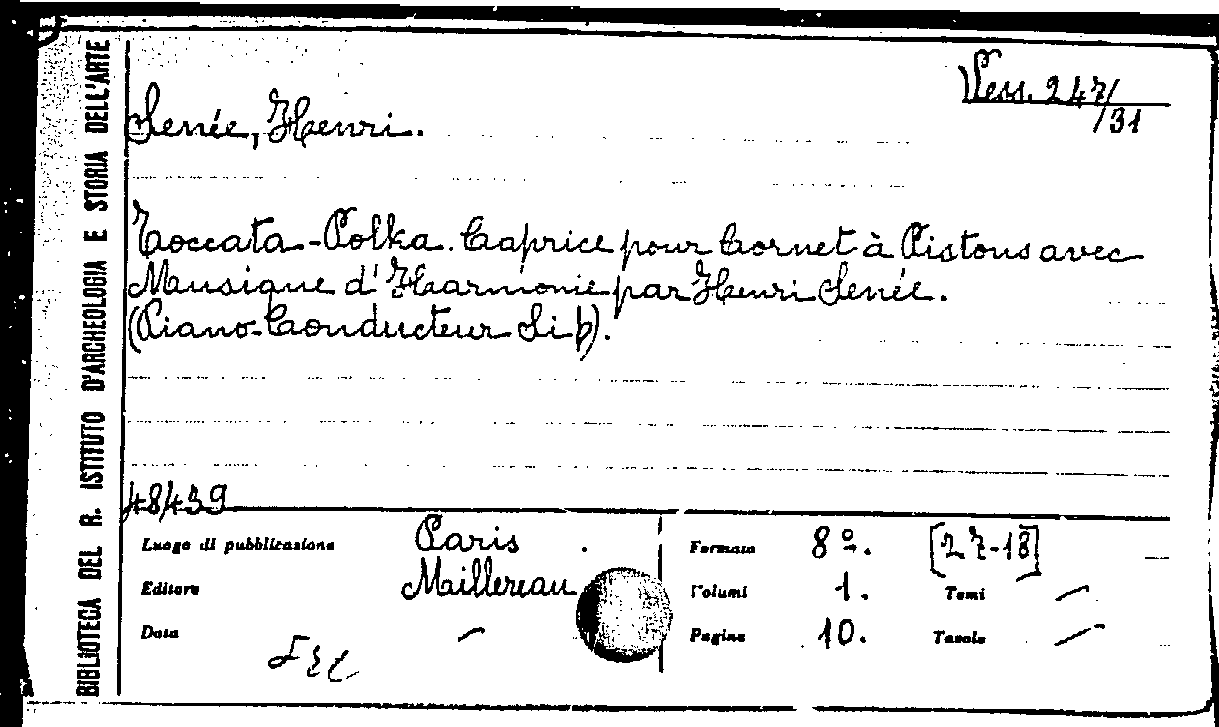 BIBLIOTECA DEL R. ISTITUTO D'ARCHEOLOGIA E STORIA DELL'ARTE
Vess. 247/
/31
Senée, Henri.
Toccata-Polka. Caprice pour Cornet à Pistons avec
Musique d'Harmonie par Henri Senée.
(Piano-Conducteur Si b).
48439
Luogo di pubblicazione Paris
Editore Maillereau
Data –
Formato 8º. [27-18]
Volumi 1. Tomi –
Pagine 10. Tavole –